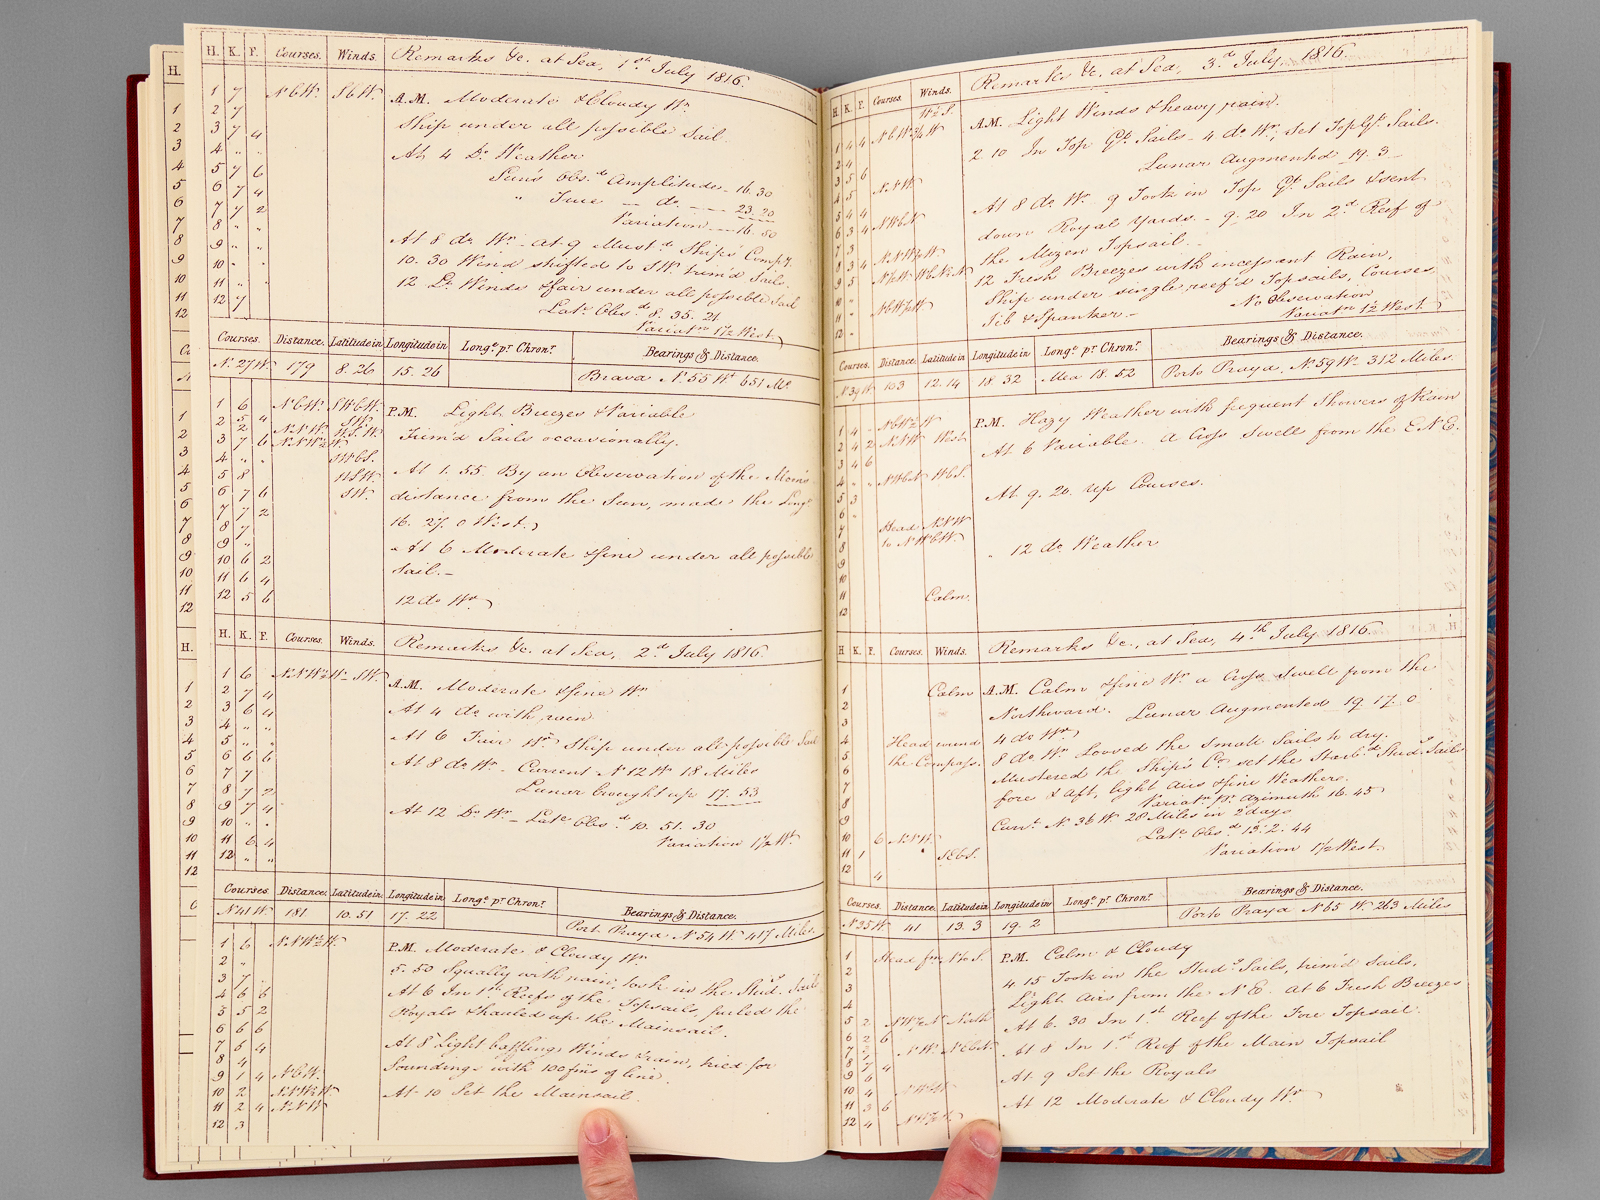 H. K. F. Courses. Winds. Remarks &c. at Sea, 1st July 1816.
1 7 NbW. SbW. A.M. Moderate & Cloudy Wr
2 7 Ship under all possible Sail
3 7 4
4 " " At 4 Do Weather
5 7 6 Sun's Obs.d Amplitude - 16.30
6 7 4 " True — do — 23.20
7 7 2 Variation — 16.50
8 " " At 8 do Wr - At 9 Must.d Ship's Compy.
9 " " 10.30 Wind shifted to SW trim'd Sails.
10 " " 12 Do Winds & fair under all possible Sail
11 " " Lat.e Obs.d 8. 35. 21
12 7 Variatn 1½ West.
Courses. Distance. Latitude in Longitude in Long.e pr Chronr. Bearings & Distance.
N. 27 W. 179 8. 26 15. 26 Brava N. 55 Wt 651 Ms.
1 6 NbW. SWbW. P.M. Light Breezes & Variable
2 5 4 SW.
2 NNW. WSW. Trim'd Sails occasionally.
3 7 6 NNW½W
4 " " SWbS.
5 8 WSW. At 1. 55. By an Observation of the Moon's
6 7 6 SW. distance from the Sun, made the Long.
7 7 2 16. 27. 0 West.
8 7
9 " " At 6 Moderate & fine under all possible
10 6 2 Sail. —
11 6 4
12 5 6 12 do Wr
H. K. F. Courses. Winds. Remarks &c. at Sea, 2d July 1816.
1 6 NNW½W SW. A.M. Moderate & fine Wr
2 7 4
3 6 4 At 4 do with rain
4 " "
5 " " At 6 Fair Wr Ship under all possible Sail
6 6 6 At 8 do Wr - Current N 12 W 18 Miles
7 7
8 7 2 Lunar brought up 17. 53
9 7 4 At 12 Do Wr - Lat.e Obs.d 10. 51. 30
10 " "
11 6 4 Variation 1½ Wt.
12 " "
Courses. Distance. Latitude in Longitude in Long.e pr Chronr. Bearings & Distance.
N 41 W. 181 10. 51 17. 22 Port Praya N 54 W. 417 Miles.
1 6 NNW½W. P.M. Moderate & Cloudy Wr
2 " 5. 50 Squally with rain, took in the Stud.g Sails
3 7 .
4 6 6 At 6 In 1st Reefs of the Topsails, furled the
5 5 2 Royals & hauled up the Mainsail.
6 6 6
7 6 4 At 8 Light baffling Winds & rain, tried for
8 4 Soundings with 100 fms of line
9 1 4 NbW.
10 2 NNW½W. At 10 Set the Mainsail
11 2 4 NNW
12 3
H. K. F. Courses. Winds. Remarks &c. at Sea, 3d July, 1816.
W½S.
1 4 4 NbW¾W A.M. Light Winds & heavy rain.
2 4 2 10 In Top Gt Sails - 4 do Wr, Set Top Gt. Sails.
3 5 6 Lunar Augmented 19. 3 —
4 5 NNW
5 4 4 At 8 do Wr - 9 Took in Top Gt Sails & sent
6 3 4 NWbN down Royal Yards. - 9. 20 In 2d Reef of
7 3 the Mizen Topsail. -
8 3 4 12 Fresh Breezes with incessant Rain,
9 5 Ship under single reef'd Topsails, Courses
10 " Jib & Spanker. — No Observation
11 " Variatn 1½ West.
12 "
Courses. Distance. Latitude in Longitude in Long.e pr Chronr. Bearings & Distance.
N 39 W 103 12. 14 18. 32 Mea 18. 52 Porto Praya, N. 59 W - 312 Miles.
1 4 - NbW½W P.M. Hazy Weather with frequent Showers of Rain
2 4 2 NNW West At 6 Variable. A Cross Swell from the ENE.
3 4 6
4 " " NWbN WbS.
5 3 At 9. 20. up Courses.
6 "
7 Head NNW
8 to NWbW. " 12 do Weather
9
10
11 Calm.
12
H K. F. Courses. Winds. Remarks &c., at Sea, 4th July 1816.
1 Calm A.M. Calm & fine Wr a Cross Swell from the
2 Northward. Lunar Augmented 19. 17. 0
3 4 do Wr
4 Head round 8 do Wr Loosed the Small Sails to dry.
5 the Compass. Mustered the Ship's Co. set the Starb.d Stud.g Sails
6 fore & aft, light airs & fine Weather.
7 Variatn pr Azimuth 16. 45
8 Curr.t N. 36 W. 28 Miles in 2 days
9 Lat.e Obs.d 13. 2. 44
10 6 NNW. Variation 1½ West.
11 1 " SEbS.
12 4
Courses. Distance. Latitude in Longitude in Long.e pr Chronr. Bearings & Distance.
N 35 W 41 13. 3 19. 2 Porto Praya N 65 W 263 Miles
1 Head fm. P.M. Calm & Cloudy
2 4 15 Took in the Stud.g Sails, trim'd Sails,
3 Light Airs from the NE. At 6 Fresh Breezes
4 At 6. 30 In 1st Reef of the Fore Topsail.
5 2 North
6 2 6 At 8 In 1st Reef of the Main Topsail
7 NW. NEbN.
8 7 4 At 9 Set the Royals
9 6
10 4
11 3 6 At 12 Moderate & Cloudy Wr
12 4